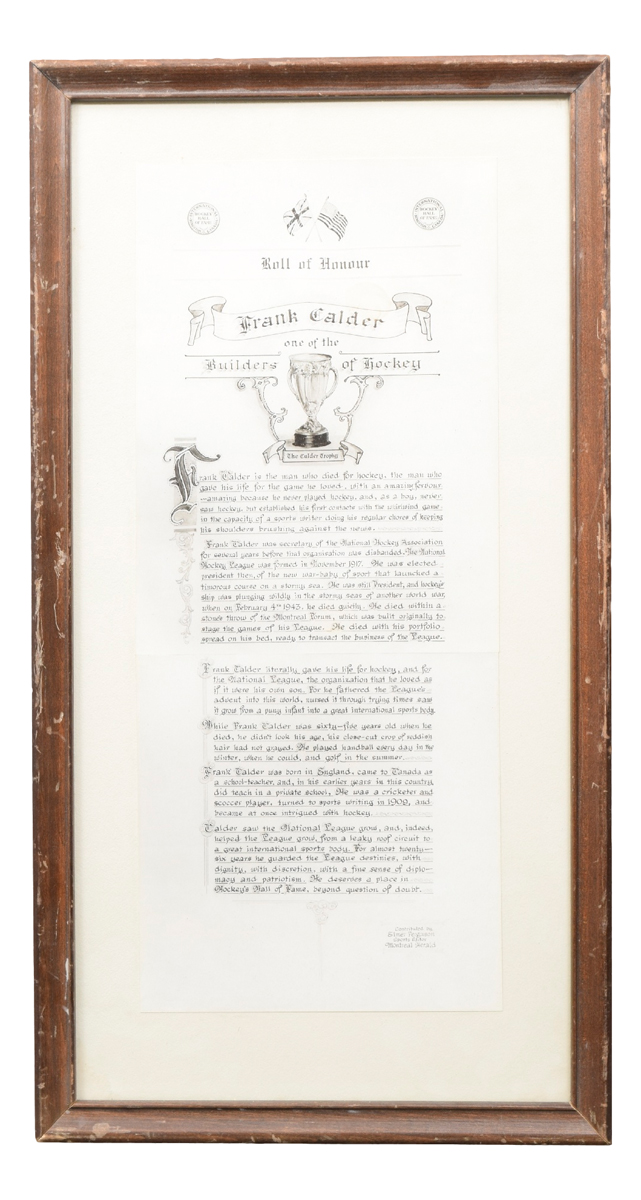 INTERNATIONAL HOCKEY HALL OF FAME
INTERNATIONAL HOCKEY HALL OF FAME
Roll of Honour
Frank Calder
one of the
Builders of Hockey
The Calder Trophy
Frank Calder is the man who died for hockey, the man who
gave his life for the game he loved, with an amazing fervour
—amazing because he never played hockey, and, as a boy, never
saw hockey, but established his first contacts with the whirlwind game
in the capacity of a sports writer doing his regular chores of keeping
his shoulders brushing against the news.
Frank Calder was secretary of the National Hockey Association
for several years before that organization was disbanded. The National
Hockey League was formed in November 1917. He was elected
president then, of the new war-baby of sport that launched a
timorous course on a stormy sea. He was still President, and hockey's
ship was plunging wildly in the stormy seas of another world war,
when on February 4th 1943, he died quietly. He died within a
stone's throw of the Montreal Forum, which was built originally to
stage the games of his League. He died with his portfolio
spread on his bed, ready to transact the business of the League.
Frank Calder literally gave his life for hockey, and for
the National League, the organization that he loved as
if it were his own son. For he fathered the League's
advent into this world, nursed it through trying times saw
it grow from a puny infant into a great international sports body.
While Frank Calder was sixty-five years old when he
died, he didn't look his age, his close-cut crop of reddish
hair had not grayed. He played handball every day in the
winter, when he could, and golf in the summer.
Frank Calder was born in England, came to Canada as
a school-teacher, and, in his earlier years in this country,
did teach in a private school. He was a cricketer and
scoccer player, turned to sports writing in 1909, and
became at once intrigued with hockey.
Calder saw the National League grow, and, indeed,
helped the League grow, from a leaky roof circuit to
a great international sports body. For almost twenty-
six years he guarded the League destinies, with
dignity, with discretion, with a fine sense of diplo-
macy and patriotism. He deserves a place in
Hockey's Hall of Fame, beyond question of doubt.
Contributed by
Elmer Ferguson
Sports Editor
Montreal Herald